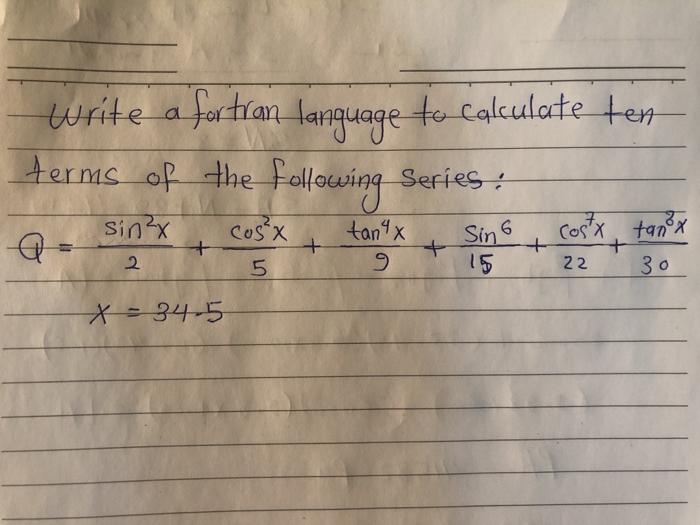 Write a fortran language to calculate ten
terms of the following series:
Q = sin²x/2 + cos²x/5 + tan⁴x/9 + Sin⁶/15 + cos⁷x/22 + tan⁸x/30
x = 34.5